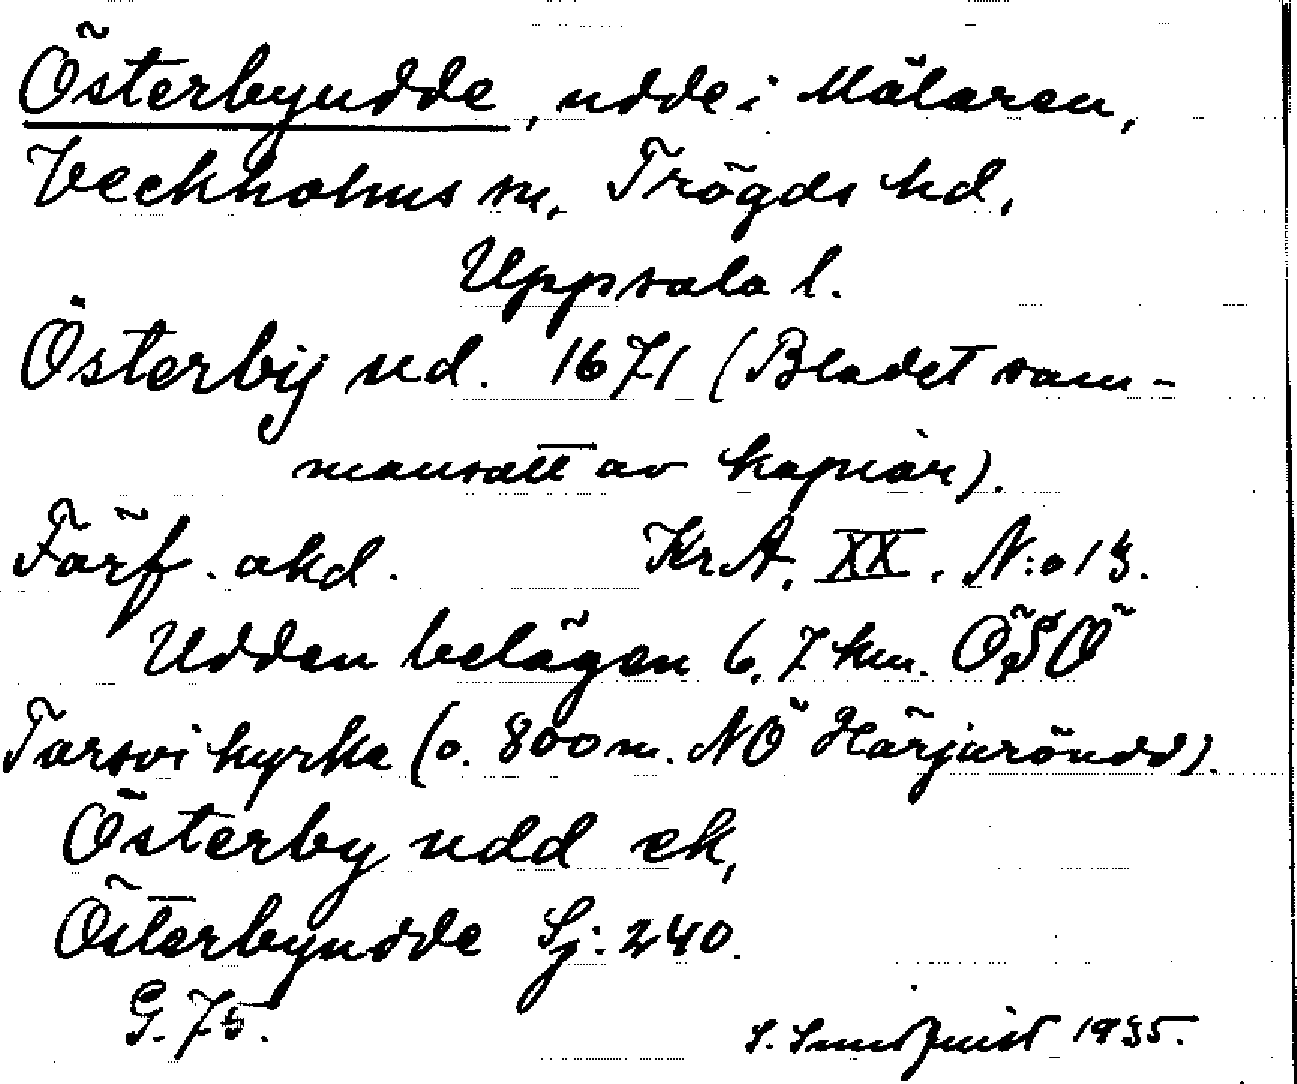 Österbyudde, udde i Mälaren,
Veckholms sn, Trögds hd,
Uppsala l.
Österbÿ ud. 1671 (Bladet sam-
mansatt av kopior).
Förf. okd. Kr.A. XX. N:o 13.
Udden belägen 6,7 km. ÖSÖ
Torsvi kyrka (o. 800 m. NÖ Härjaröudd).
Österby udd ek,
Österbyudde Sj: 240.
G. 75.
S. 1935.